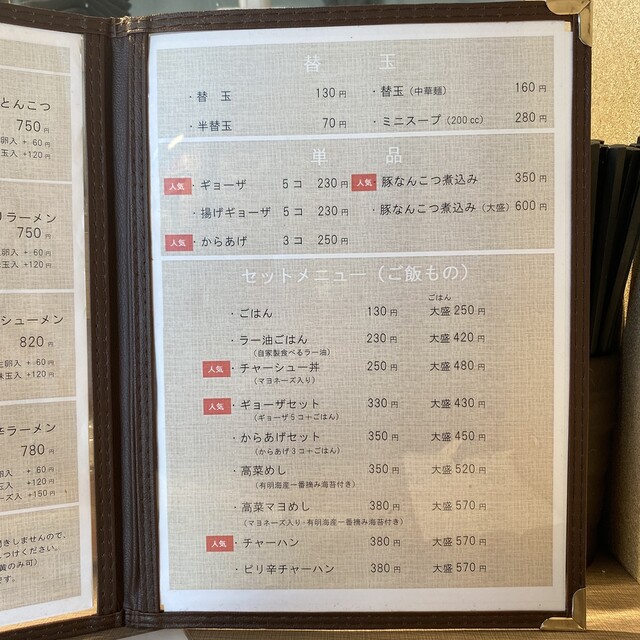 とんこつ
750円
卵入 + 60円
玉入 +120円
りラーメン
750円
卵入 + 60円
玉入 +120円
シューメン
820円
生卵入 + 60円
味玉入 +120円
辛ラーメン
780円
卵入 + 60円
玉入 +120円
ーズ入 +150円
きしませんので、
つけください。
黄のみ可)
です。
替 玉
・替 玉 130円
・替玉(中華麺) 160円
・半替玉 70円
・ミニスープ(200cc) 280円
単 品
人気 ・ギョーザ 5コ 230円
人気 ・豚なんこつ煮込み 350円
・揚げギョーザ 5コ 230円
・豚なんこつ煮込み(大盛) 600円
人気 ・からあげ 3コ 250円
セットメニュー(ご飯もの)
ごはん
・ごはん 130円 大盛 250円
・ラー油ごはん 230円 大盛 420円
(自家製食べるラー油)
人気 ・チャーシュー丼 250円 大盛 480円
(マヨネーズ入り)
人気 ・ギョーザセット 330円 大盛 430円
(ギョーザ5コ+ごはん)
・からあげセット 350円 大盛 450円
(からあげ3コ+ごはん)
・高菜めし 350円 大盛 520円
(有明海産一番摘み海苔付き)
・高菜マヨめし 380円 大盛 570円
(マヨネーズ入り・有明海産一番摘み海苔付き)
人気 ・チャーハン 380円 大盛 570円
・ピリ辛チャーハン 380円 大盛 570円